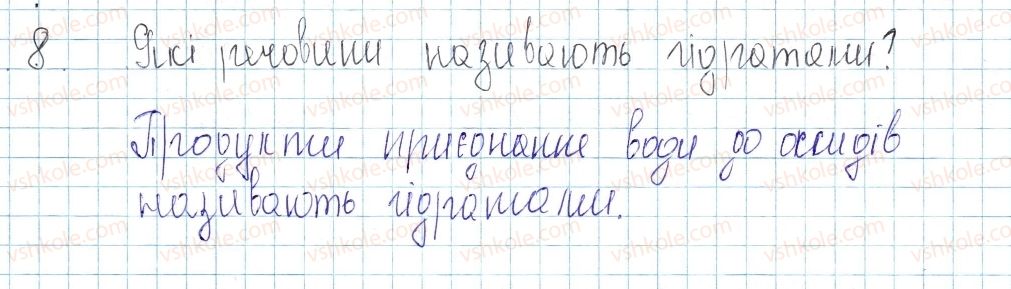 8. Які речовини називають гідратами?
Продукти приєднання води до оксидів
називають гідратами.